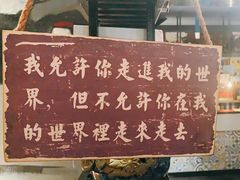 我允許你走進我的世
界，但不允許你在我
的世界裡走來走去.